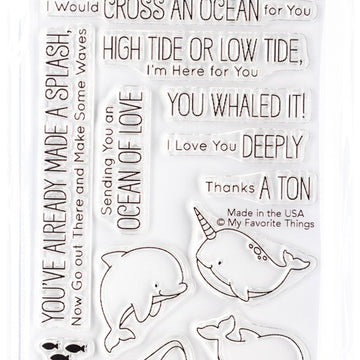 I Would CROSS AN OCEAN for You
HIGH TIDE OR LOW TIDE,
I'm Here for You
YOU WHALED IT!
I Love You DEEPLY
Thanks A TON
Made in the USA
© My Favorite Things
YOU'VE ALREADY MADE A SPLASH,
Now Go out There and Make Some Waves
Sending You an
OCEAN OF LOVE